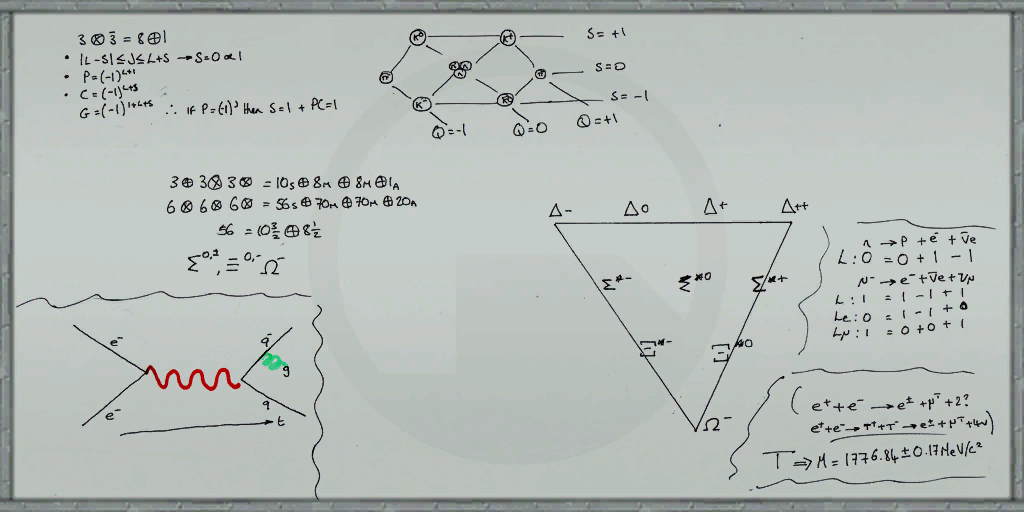 3 ⊗ 3̄ = 8 ⊕ 1
• |L-S| ≤ J ≤ L+S → S=0 or 1
• P=(-1)^L+1
• C=(-1)^L+S
G=(-1)^1+L+S ∴ IF P=(-1)^J then S=1 + PC=1
K⁰ K+ S=+1
π S=0
K⁻ S=-1
Q=-1 Q=0 Q=+1
3 ⊕ 3 ⊗ 3 ⊗ = 10s ⊕ 8M ⊕ 8M ⊕ 1A
6 ⊗ 6 ⊗ 6 ⊗ = 56s ⊕ 70M ⊕ 70M ⊕ 20A
56 = 10 3/2 ⊕ 8 1/2
Ξ^0,- Ω⁻
Δ- Δ0 Δ+ Δ++
Σ*- Σ*0 Σ*+
Ξ*- Ξ*0
Ω-
n → P + e⁻ + ν̄e
L: 0 = 0 + 1 - 1
μ- → e⁻ + ν̄e + νμ
L: 1 = 1 - 1 + 1
Le: 0 = 1 - 1 + 0
Lμ: 1 = 0 + 0 + 1
e⁻ q̄
g
e⁻ q
t
(e⁺ + e⁻ → e± + μ∓ + 2?
e⁺+e⁻ → τ⁺+τ⁻ → e± + μ∓ + 4ν)
T ⇒ M = 1776.84 ± 0.17 MeV/c²